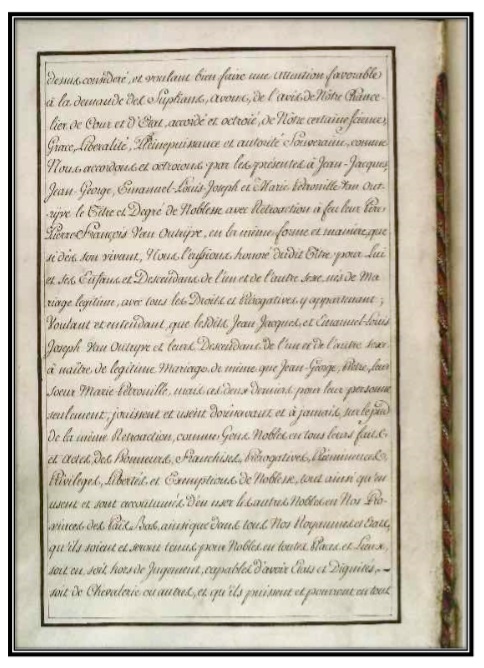 dessus consideré, et voulant bien faire une attention favorable
à la demande des Suplians, avons, de l'avis de Nôtre Chance-
lier de Cour et d'Etat, accordé et octroié, de Nôtre certaine science,
Grace, Liberalité, Pleine puissance et autorité Souveraine, comme
Nous accordons et octroions par les présentes à Jean-Jacques,
Jean-George, Emanuel-Louis-Joseph et Marie-Petronille Van Out-
ryve le Titre et Degré de Noblesse avec Rétroaction à feu leur Pere
Pierre François Van Outryve, en la même forme et maniere, que
si dès son vivant, Nous l'eussions honoré dudit Titre pour Lui
et ses Enfans et Descendans de l'un et de l'autre sexe, nés de Ma
riage legitime, avec tous les Droits et Prérogatives y appartenant ;
Voulant et entendant, que lesdits Jean Jacques, et Emanuel-Louis
Joseph Van Outryve et leurs Descendans de l'un et de l'autre sexe
à naître de legitime Mariage, de même que Jean-George, Prêtre, leur
Soeur Marie-Petronille, mais ces deux derniers pour leur personne
seulement, jouissent et usent dorénavant et à jamais, sur le pied
de la même Rétroaction, comme Gens Nobles en tous leurs faits
et actes, des Honneurs, Franchises, Prérogatives, Prééminences,
Privileges, Libertés et Exemptions de Noblesse, tout ainsi qu'en
usent et sont accoutumés d'en user les autres Nobles en Nos Pro-
vinces des Païs Bas, ainsi que dans tous Nos Royaumes et Etats,
qu'ils soient et seront tenus pour Nobles en toutes Places et Lieux,
soit en, soit hors de Jugement, capables d'avoir Etats et Dignités,
soit de Chevalerie ou autres, et qu'ils puissent et pourront en tout